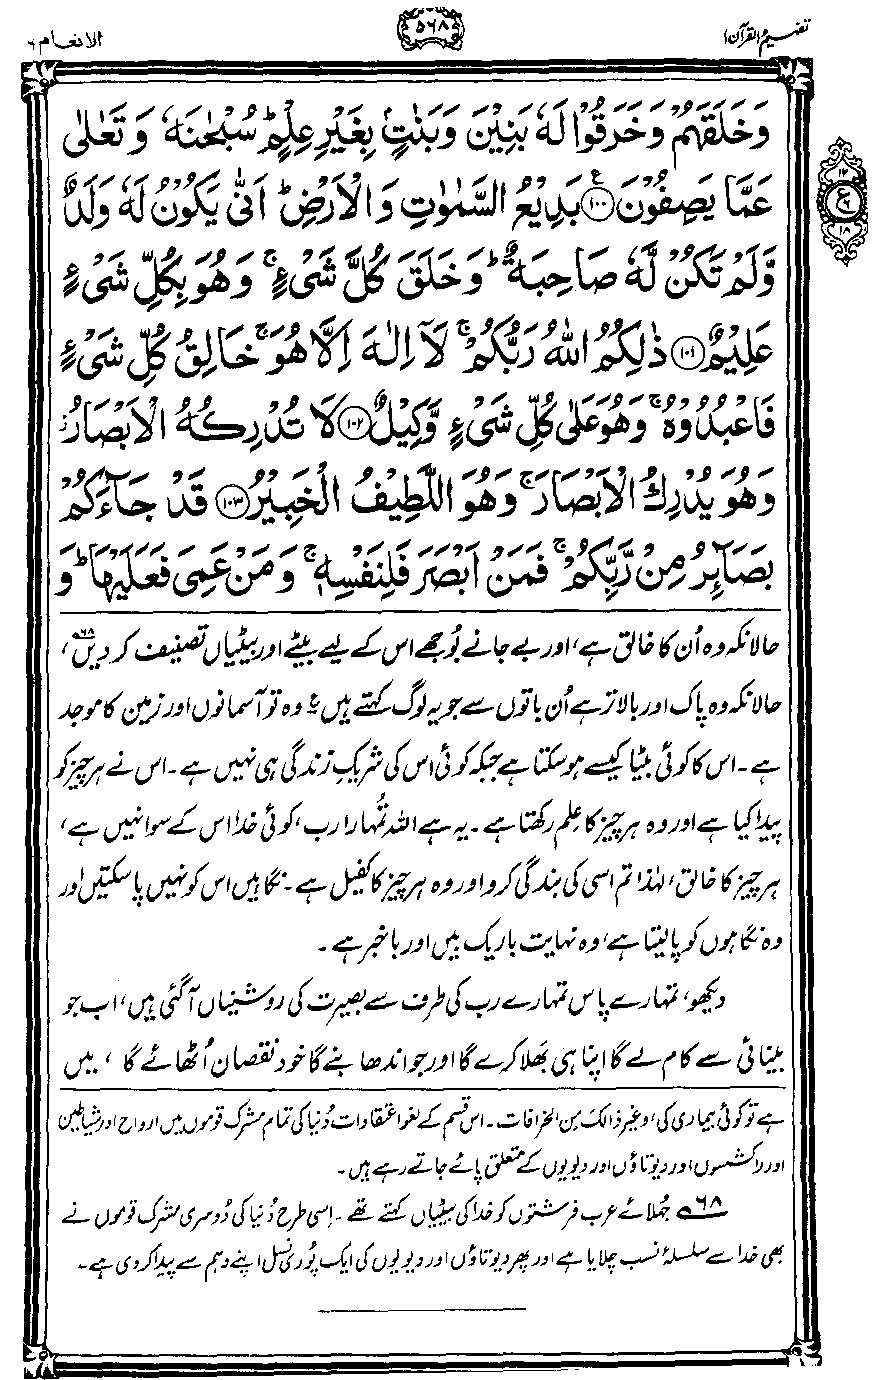 تفہیم القرآن ۱
۵۶۸
الانعام ۶
وَخَلَقَهُمْ وَخَرَقُوْا لَهٗ بَنِيْنَ وَبَنٰتٍۢ بِغَيْرِ عِلْمٍ ؕ سُبْحٰنَهٗ وَتَعٰلٰى
عَمَّا يَصِفُوْنَ ﴿۱۰۰﴾ ع بَدِيْعُ السَّمٰوٰتِ وَالْاَرْضِ ؕ اَنّٰى يَكُوْنُ لَهٗ وَلَدٌ
وَّلَمْ تَكُنْ لَّهٗ صَاحِبَةٌ ؕ وَخَلَقَ كُلَّ شَىْءٍ ۚ وَهُوَ بِكُلِّ شَىْءٍ
عَلِيْمٌ ﴿۱۰۱﴾ ذٰلِكُمُ اللّٰهُ رَبُّكُمْ ۚ لَاۤ اِلٰهَ اِلَّا هُوَ ۚ خَالِقُ كُلِّ شَىْءٍ
فَاعْبُدُوْهُ ۚ وَهُوَ عَلٰى كُلِّ شَىْءٍ وَّكِيْلٌ ﴿۱۰۲﴾ لَا تُدْرِكُهُ الْاَبْصَارُ ؗ
وَهُوَ يُدْرِكُ الْاَبْصَارَ ۚ وَهُوَ اللَّطِيْفُ الْخَبِيْرُ ﴿۱۰۳﴾ قَدْ جَآءَكُمْ
بَصَآئِرُ مِنْ رَّبِّكُمْ ۚ فَمَنْ اَبْصَرَ فَلِنَفْسِهٖ ۚ وَمَنْ عَمِىَ فَعَلَيْهَا ؕ وَ
۱۲
ع
۱۸
حالانکہ وہ اُن کا خالق ہے، اور بے جانے بُوجھے اس کے لیے بیٹے اور بیٹیاں تصنیف کر دیں۶۸،
حالانکہ وہ پاک اور بالاتر ہے اُن باتوں سے جو یہ لوگ کہتے ہیں ع وہ تو آسمانوں اور زمین کا موجد
ہے۔ اس کا کوئی بیٹا کیسے ہو سکتا ہے جبکہ کوئی اس کی شریکِ زندگی ہی نہیں ہے۔ اس نے ہر چیز کو
پیدا کیا ہے اور وہ ہر چیز کا علم رکھتا ہے۔ یہ ہے اللہ تُمہارا رب، کوئی خدا اس کے سوا نہیں ہے،
ہر چیز کا خالق، لہٰذا تم اسی کی بندگی کرو اور وہ ہر چیز کا کفیل ہے۔ نگاہیں اس کو نہیں پا سکتیں اور
وہ نگاہوں کو پالیتا ہے، وہ نہایت باریک بیں اور باخبر ہے۔
دیکھو، تمہارے پاس تمہارے رب کی طرف سے بصیرت کی روشنیاں آگئی ہیں، اب جو
بینائی سے کام لے گا اپنا ہی بھلا کرے گا اور جو اندھا بنے گا خود نقصان اُٹھائے گا، میں
ہے تو کوئی بیماری کی، وغیر ذالک من الخرافات۔ اس قسم کے لغو اعتقادات دُنیا کی تمام مشرک قوموں میں ارواح اور شیاطین
اور راکشسوں اور دیوتاؤں اور دیویوں کے متعلق پائے جاتے رہے ہیں۔
۶۸ جُہلائے عرب فرشتوں کو خدا کی بیٹیاں کہتے تھے۔ اِسی طرح دُنیا کی دُوسری مشرک قوموں نے
بھی خدا سے سلسلۂ نسب چلایا ہے اور پھر دیوتاؤں اور دیویوں کی ایک پُوری نسل اپنے وہم سے پیدا کر دی ہے۔